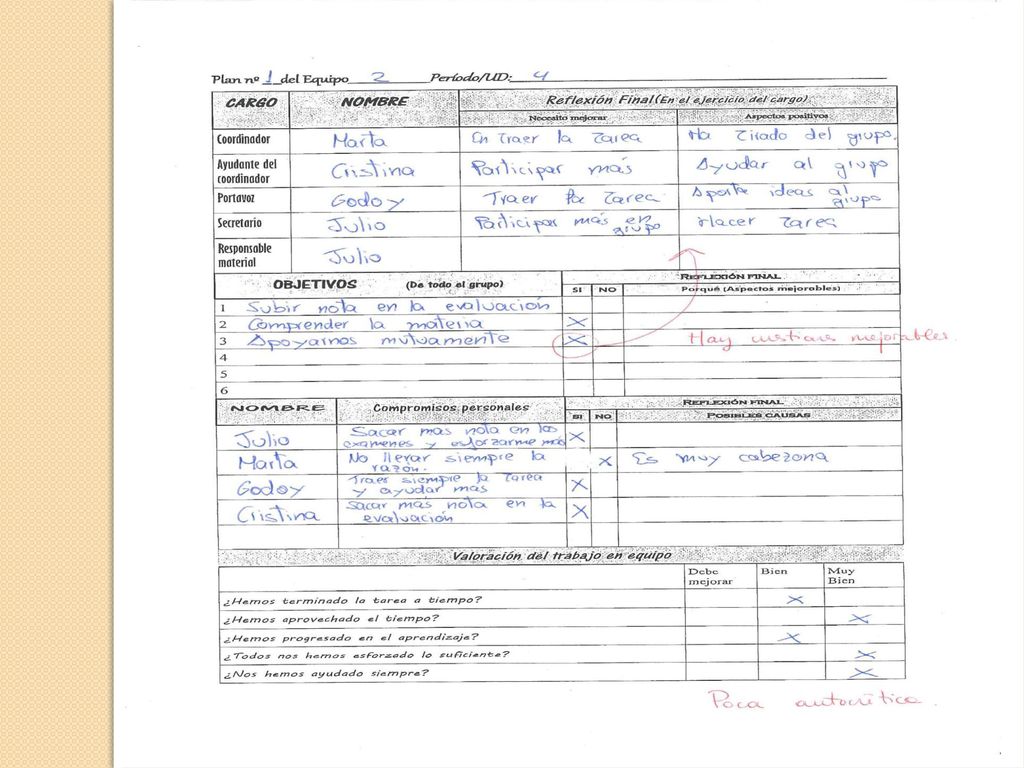 Plan nº 1 del Equipo 2 Período/UD: 4
CARGO NOMBRE Reflexión Final (En el ejercicio del cargo)
Necesito mejorar Aspectos positivos
Coordinador Marta En Traer la Tarea Ha Tirado del grupo.
Ayudante del coordinador Cristina Participar más Ayudar al grupo
Portavoz Godoy Traer la Tarea. Aporta ideas al grupo
Secretario Julio Participar más en grupo Hacer Tarea
Responsable material Julio
OBJETIVOS (De todo el grupo) REFLEXIÓN FINAL
SI NO Porqué (Aspectos mejorables)
1 Subir nota en la evaluación
2 Comprender la materia X
3 Apoyarnos mutuamente X Hay cuestiones mejorables.
4
5
6
NOMBRE Compromisos personales REFLEXIÓN FINAL
SI NO POSIBLES CAUSAS
Julio Sacar más nota en los exámenes y esforzarme más X
Marta No llevar siempre la razón. X Es muy cabezona
Godoy Traer siempre la Tarea y ayudar más X
Cristina Sacar más nota en la evaluación X
Valoración del trabajo en equipo
Debe mejorar Bien Muy Bien
¿Hemos terminado la tarea a tiempo? X
¿Hemos aprovechado el tiempo? X
¿Hemos progresado en el aprendizaje? X
¿Todos nos hemos esforzado lo suficiente? X
¿Nos hemos ayudado siempre? X
Poca autocrítica.